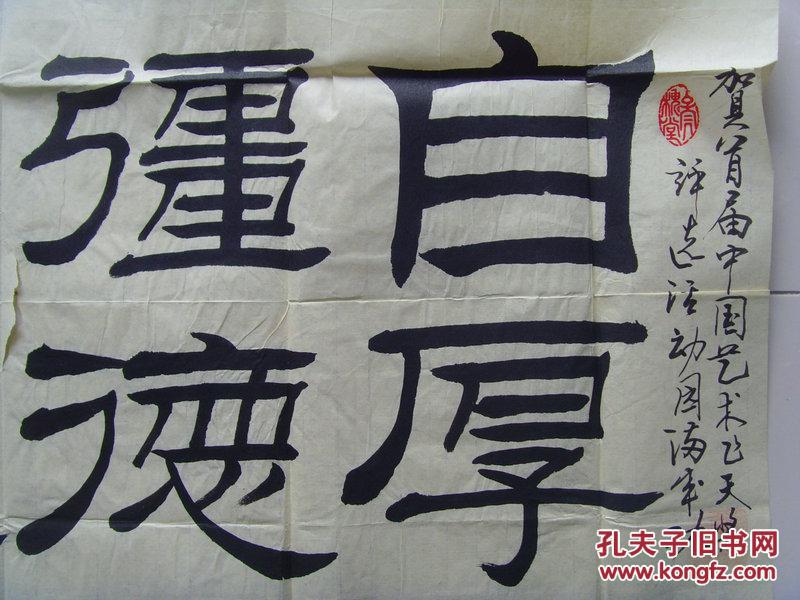 賀首届中国艺术飞天奖
评选活动圆满成
自彊
厚德
孔夫子旧书网
www.kongfz.com